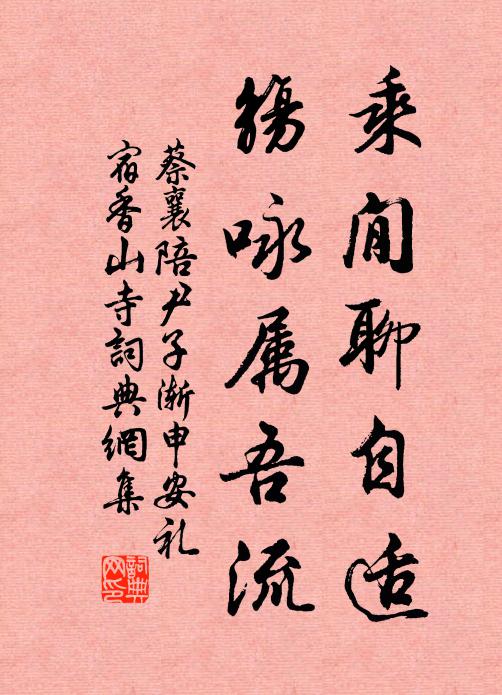 乘閒聊自适
觞咏属吾流
蔡襄陪尹子渐申安礼
宿香山寺詞典網集
詞典网印